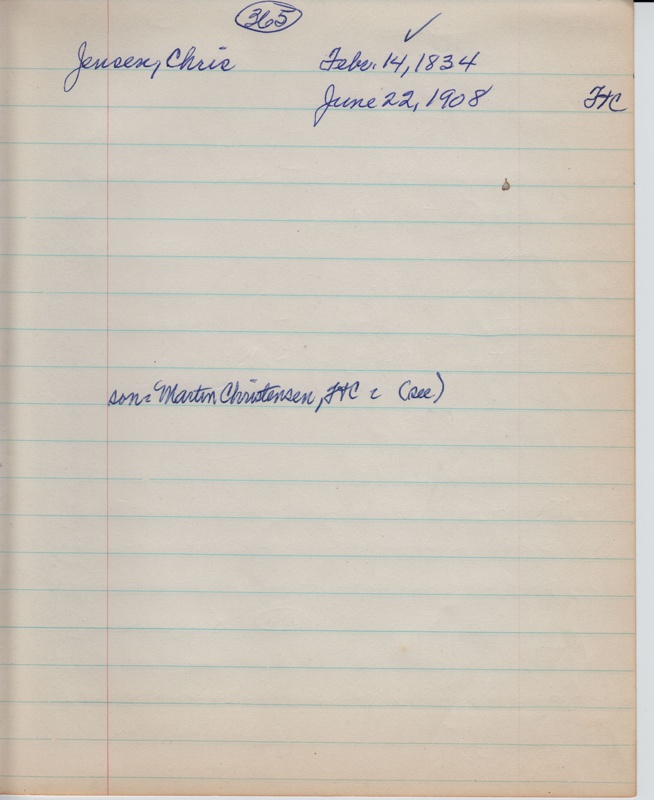 365
✓
Jensen, Chris Febr. 14, 1834
June 22, 1908 FHC
son: Martin Christensen, FHC : (see)